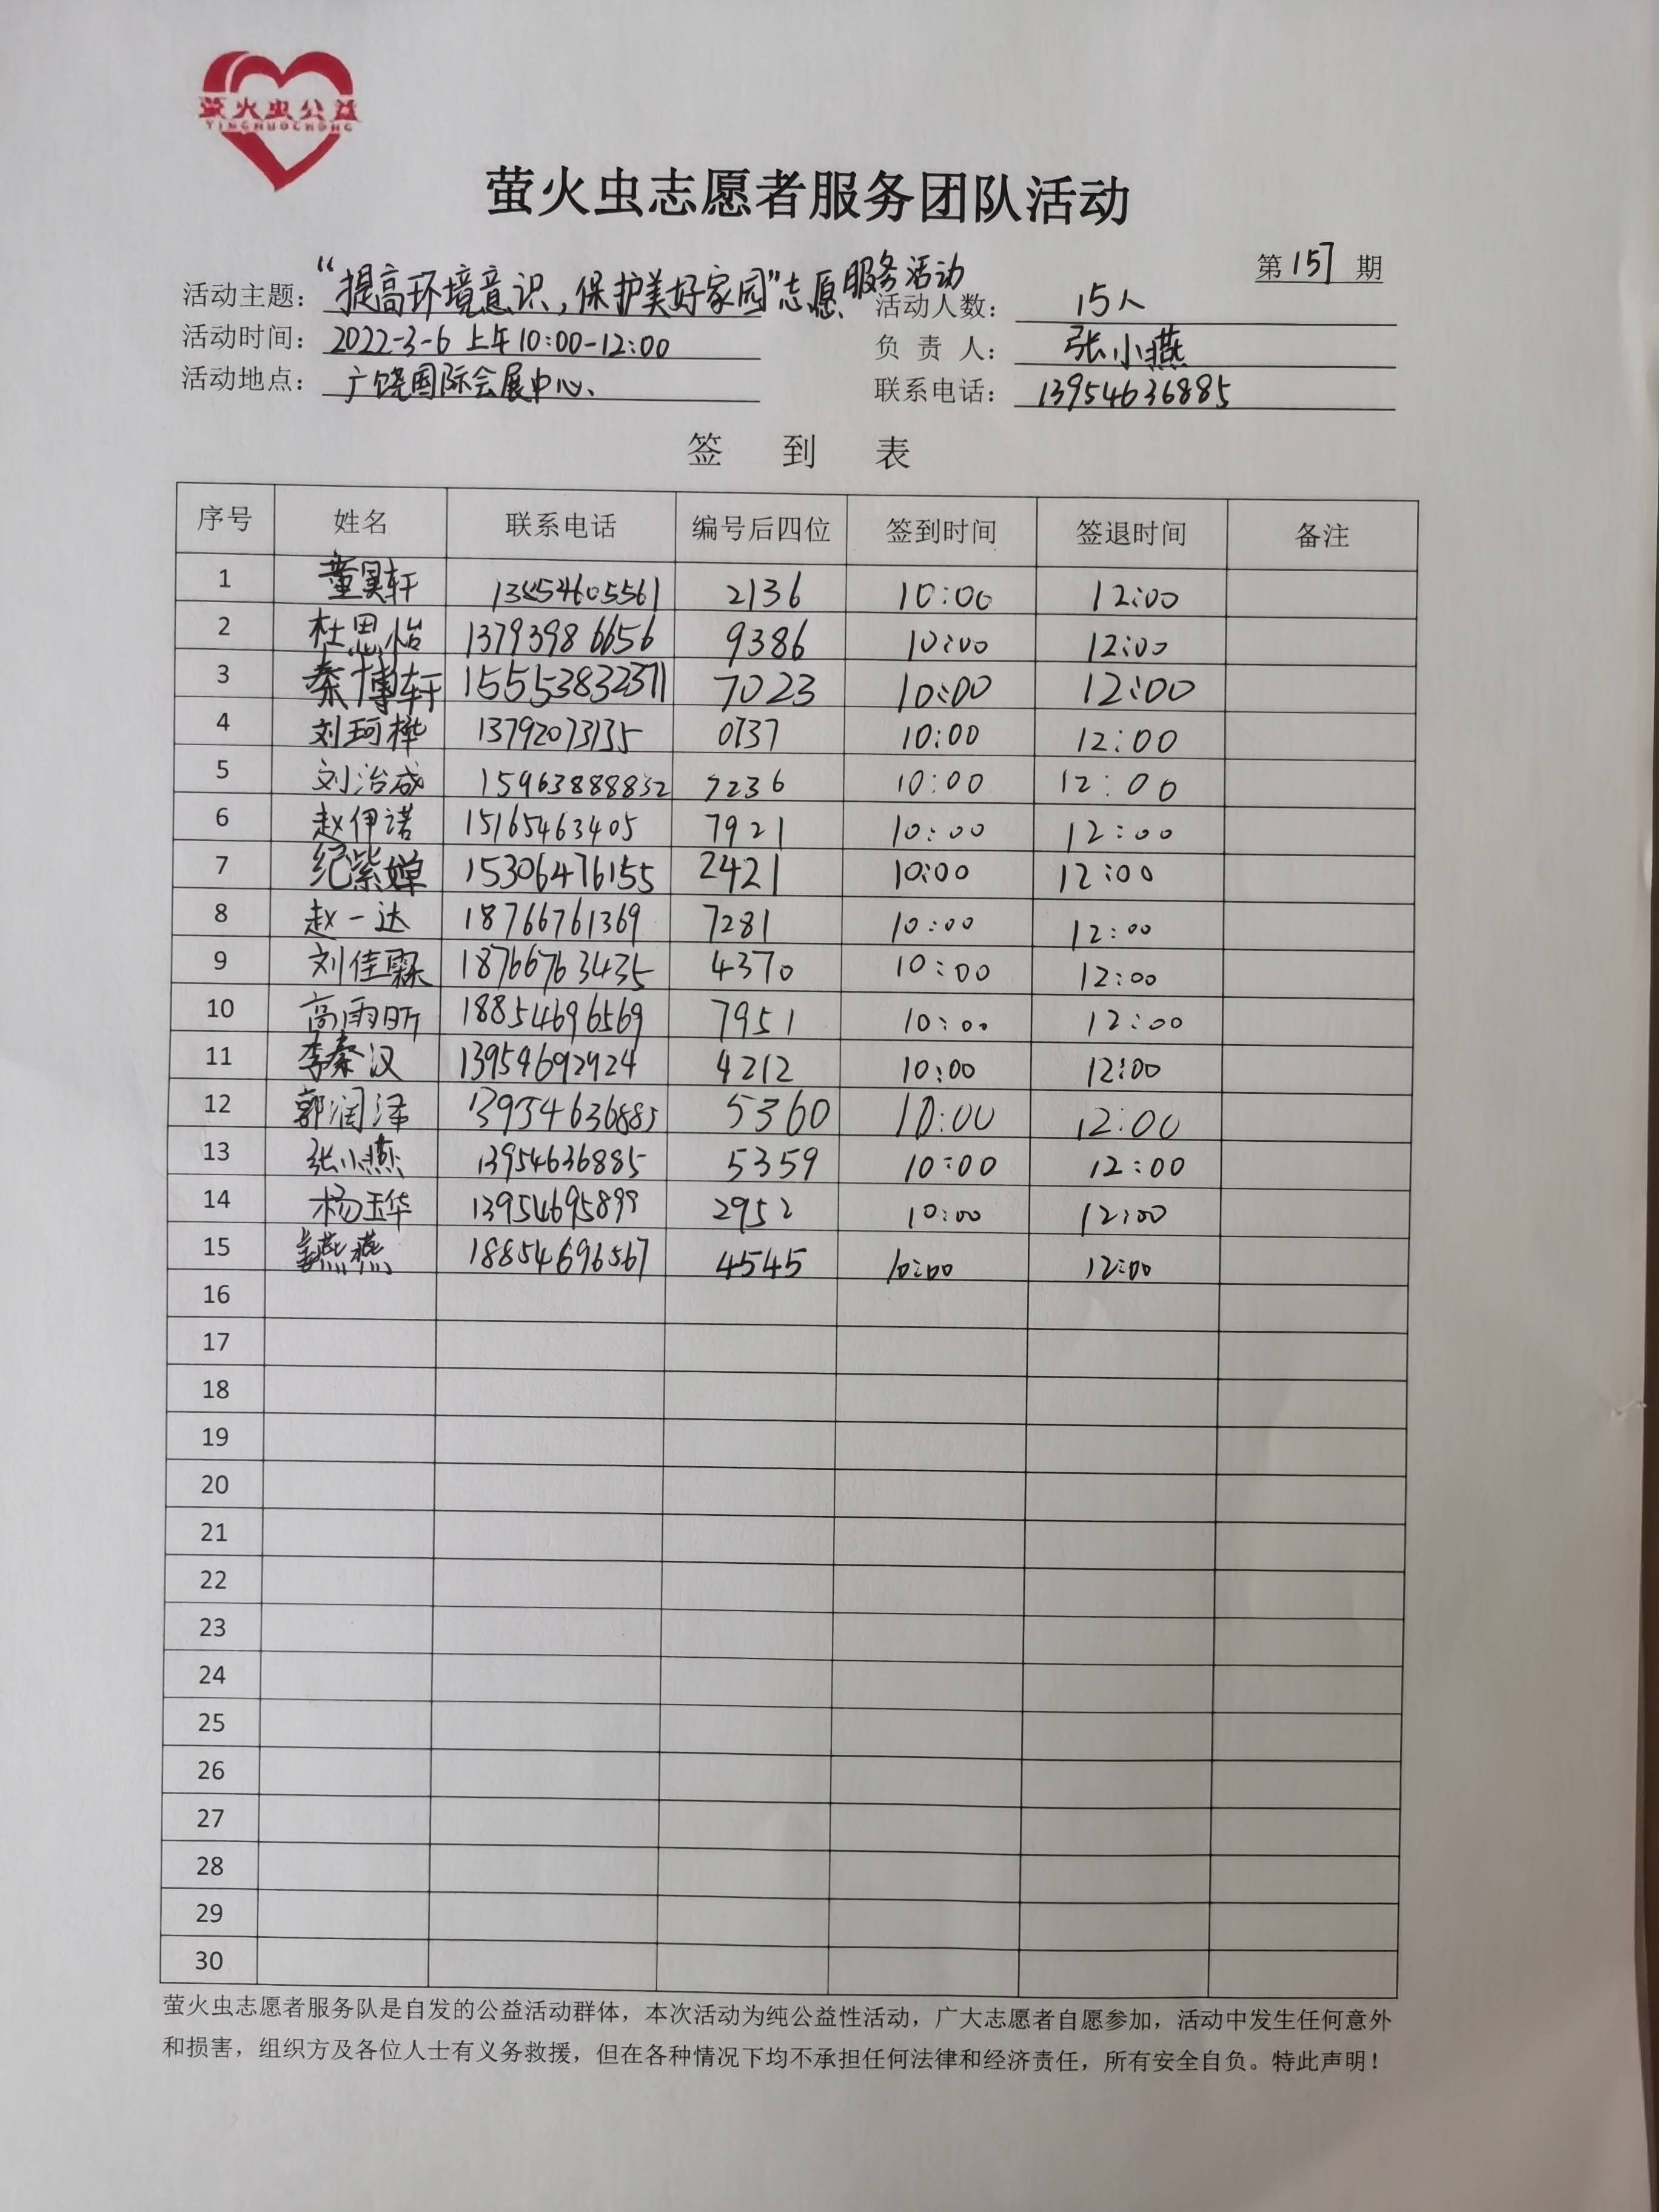 萤火虫公益
YINGHUOCHONG
萤火虫志愿者服务团队活动
第157期
活动主题：“提高环境意识，保护美好家园”志愿服务活动 活动人数：15人
活动时间：2022-3-6 上午10:00-12:00 负责人：张小燕
活动地点：广饶国际会展中心、 联系电话：13954636885
签到表
序号 姓名 联系电话 编号后四位 签到时间 签退时间 备注
1 董昊轩 13854605561 2136 10:00 12:00
2 杜思怡 13793986656 9386 10:00 12:00
3 秦博轩 15553832371 7023 10:00 12:00
4 刘珂桦 13792073135 0737 10:00 12:00
5 刘治成 15963888832 7236 10:00 12:00
6 赵伊诺 15165463405 7921 10:00 12:00
7 纪紫婵 15306476155 2421 10:00 12:00
8 赵一达 18766761369 7281 10:00 12:00
9 刘佳霖 18766763435 4370 10:00 12:00
10 高雨昕 18854696569 7951 10:00 12:00
11 李秦汉 13954692924 4212 10:00 12:00
12 郭润泽 13954636885 5360 10:00 12:00
13 张小燕 13954636885 5359 10:00 12:00
14 杨玉华 13954695899 2952 10:00 12:00
15 燕燕 18854696567 4545 10:00 12:00
16
17
18
19
20
21
22
23
24
25
26
27
28
29
30
萤火虫志愿者服务队是自发的公益活动群体，本次活动为纯公益性活动，广大志愿者自愿参加，活动中发生任何意外
和损害，组织方及各位人士有义务救援，但在各种情况下均不承担任何法律和经济责任，所有安全自负。特此声明！